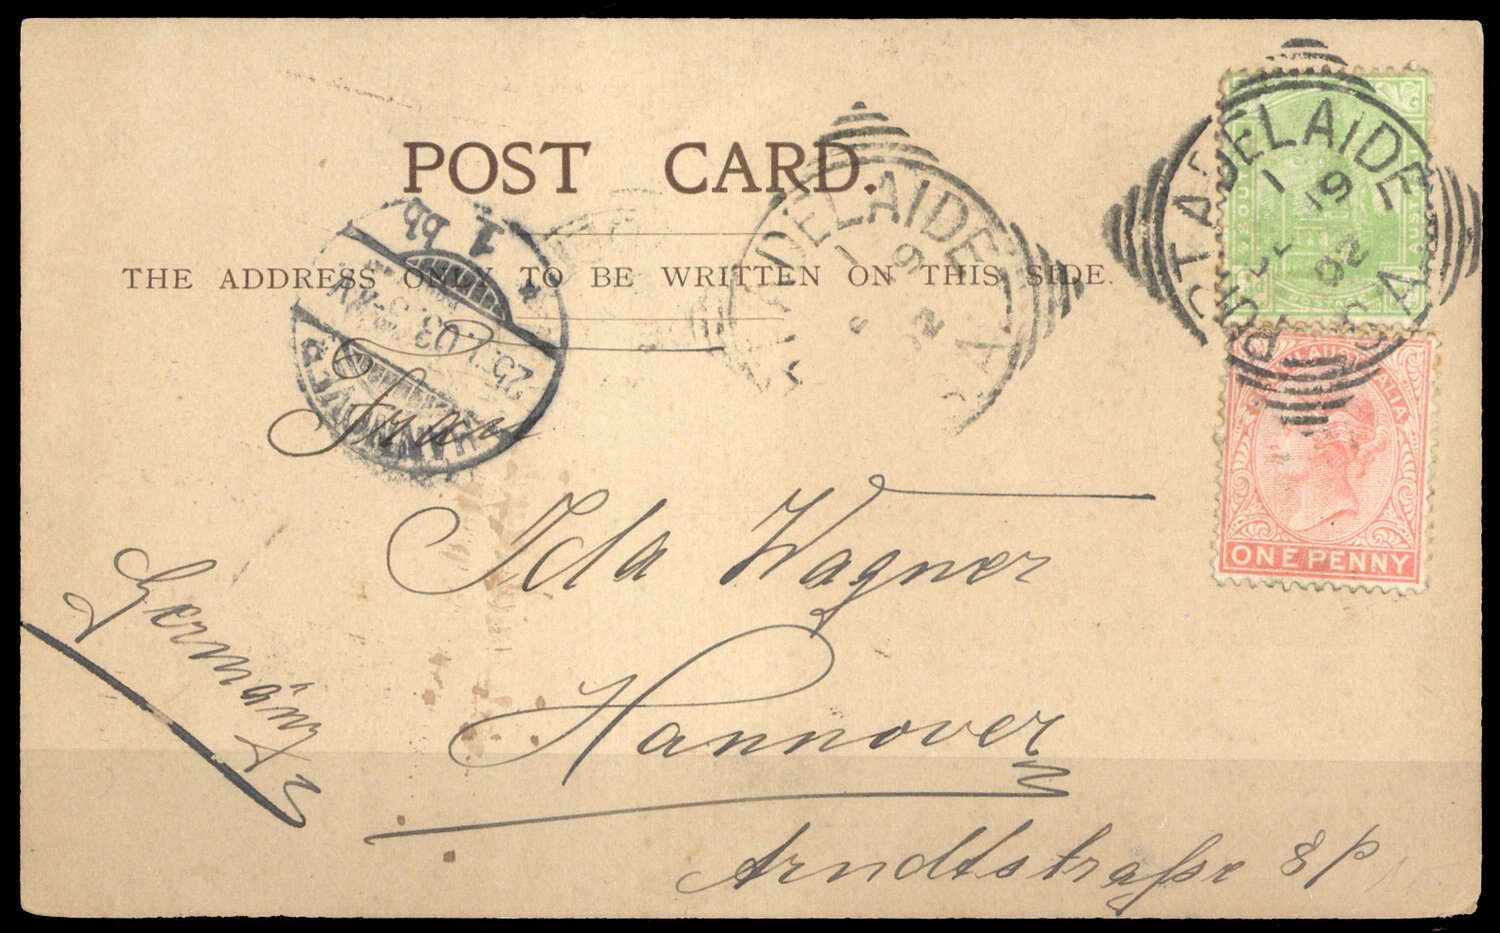 POST CARD.
THE ADDRESS ONLY TO BE WRITTEN ON THIS SIDE.
1 bb
25.1.03. 
HANNOVER
ADELAIDE
19
02
S.A
ADELAIDE
19
02
S A
POSTAGE
AUSTRALIA
ONE PENNY
Frau
Ida Wagner
Hannover
Arndtstraße 8 p
Germany